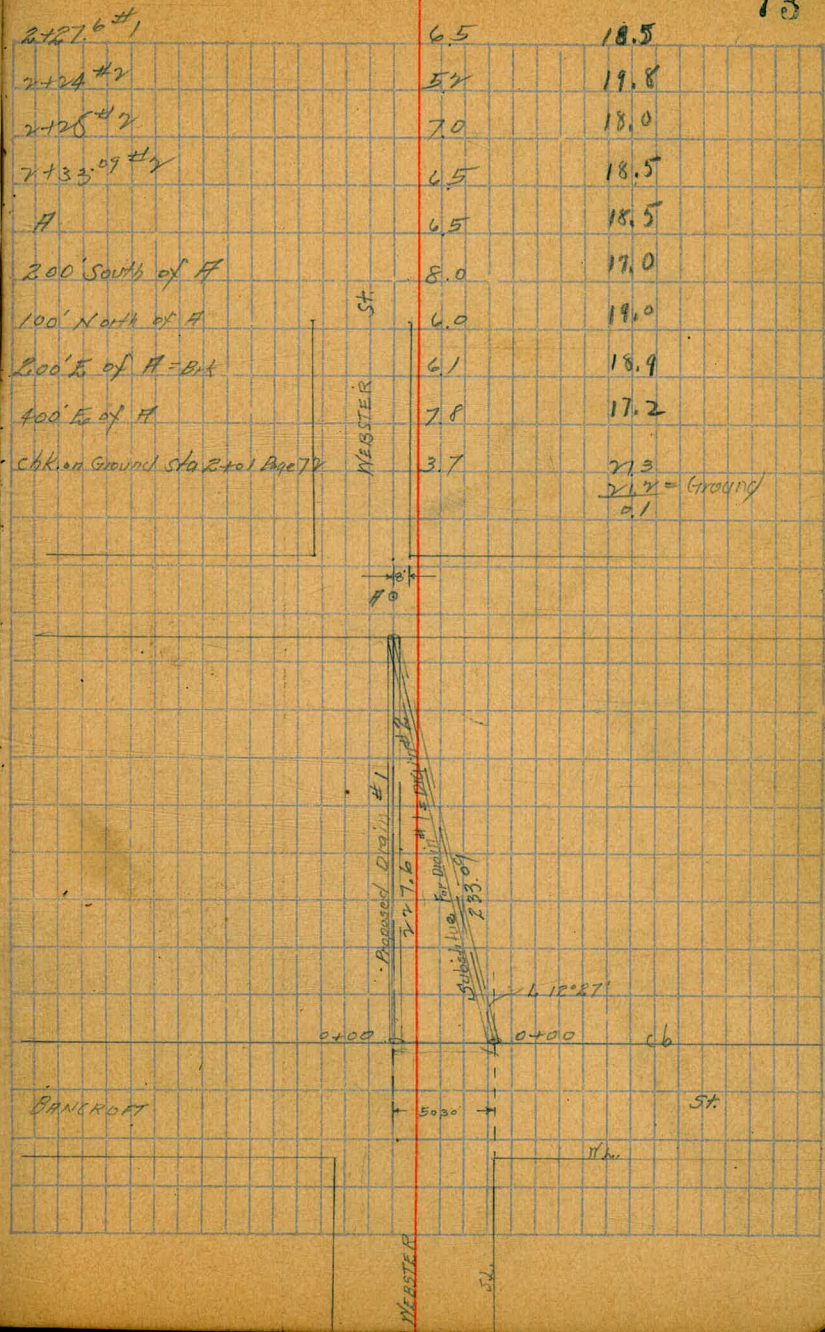 73
2+27.6 #1 6.5 18.5
2+24 #2 5.2 19.8
2+28 #2 7.0 18.0
2+33.09 #2 6.5 18.5
A 6.5 18.5
200' South of A 8.0 17.0
100' North of A 6.0 19.0
200' E of A = Brk 6.1 18.9
400' E of A 7.8 17.2
chk. on Ground Sta 2+01 Page 72 3.7 21.3
21.2 = Ground
0.1
WEBSTER St.
8'
A
Proposed Drain #1
227.6'
Substitue For Drain #1 = Drain #2
233.09
L 12°27'
0+00
0+00
cb
BANCROFT St.
50.30'
WEBSTER